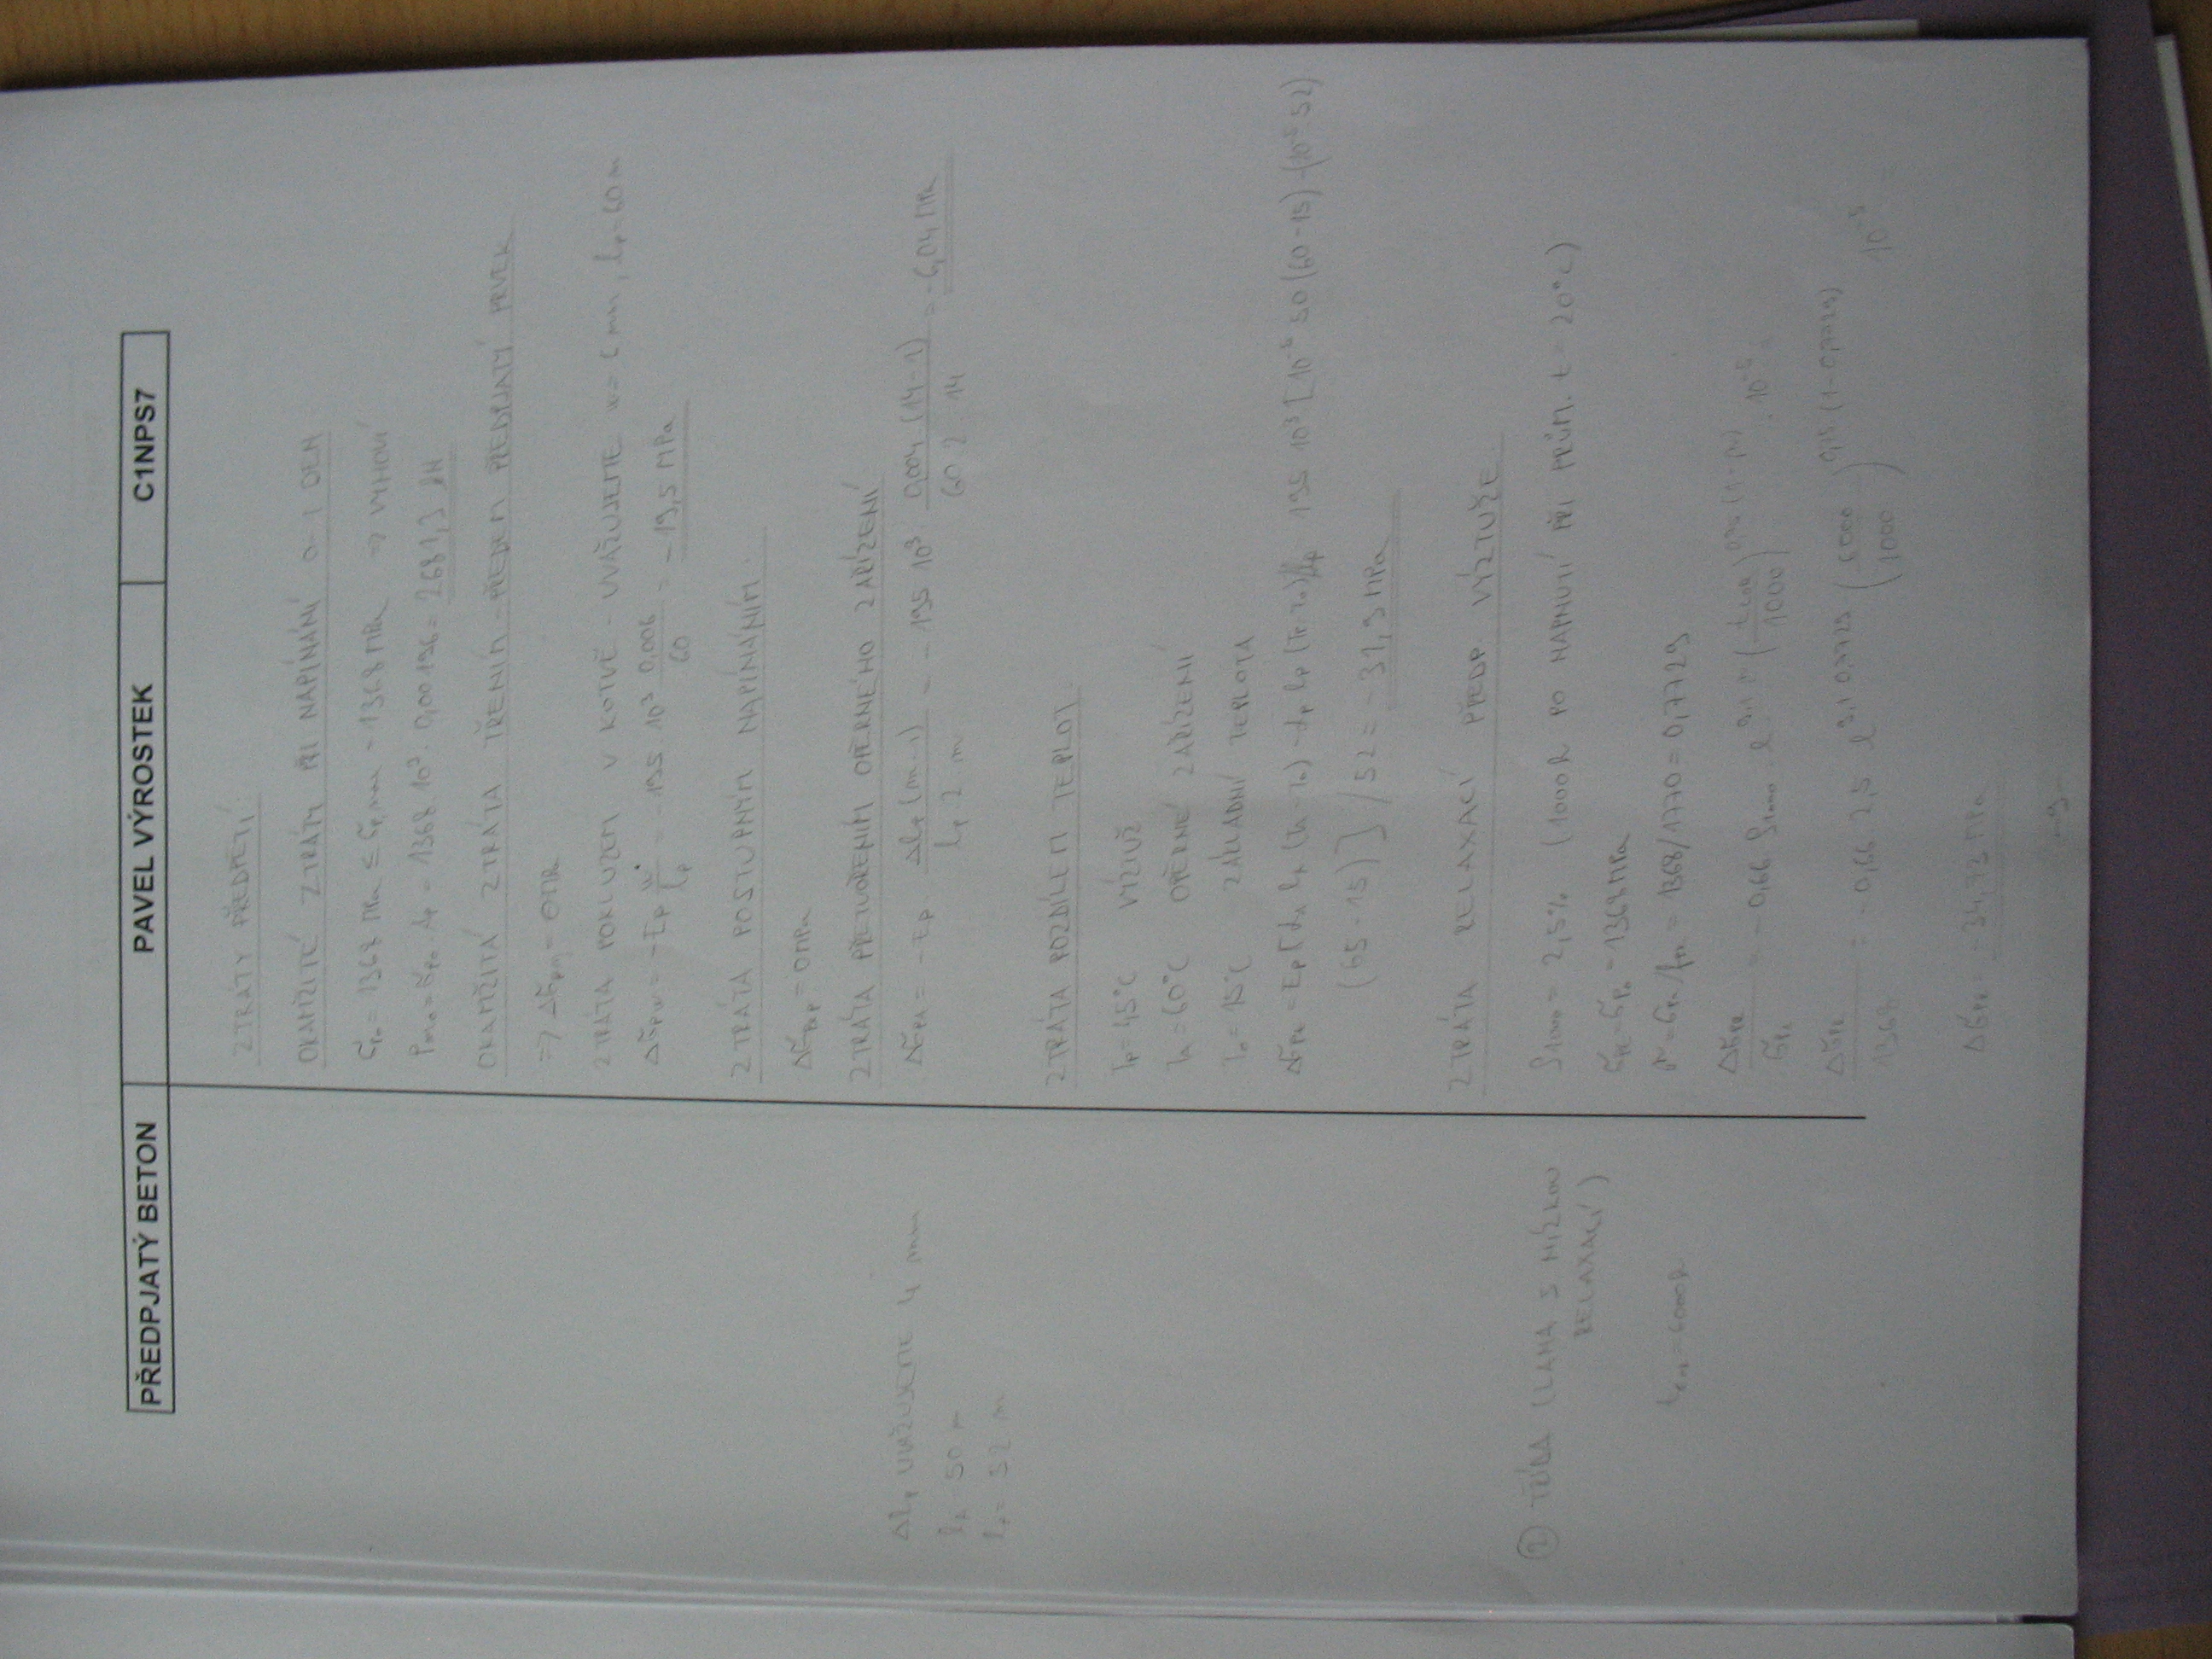 PŘEDPJATÝ BETON PAVEL VÝROSTEK C1NPS7
ZTRÁTY PŘEDPĚTÍ:
OKAMŽITÉ ZTRÁTY PŘI NAPÍNÁNÍ 0-1 DEN
σp0 = 1368 MPa ≤ σp,max = 1368 MPa ⇒ VYHOVÍ
Pm0 = σp0 . Ap = 1368 . 10³ . 0,00196 = 2681,3 kN
OKAMŽITÁ ZTRÁTA TŘENÍM - PŘEDEM PŘEDPJATÝ PRVEK
⇒ Δσpμ = 0 MPa
ZTRÁTA POKLUZEM V KOTVĚ - UVAŽUJEME w = 6 mm, lp = 60 m
Δσpw = -Ep w/lp = -195 10³ 0,006/60 = -19,5 MPa
ZTRÁTA POSTUPNÝM NAPÍNÁNÍM:
= 0 MPa
ZTRÁTA PŘETVOŘENÍM OPĚRNÉHO ZAŘÍZENÍ
ΔlP UVAŽUJEME 4 mm
ΔσpA = -Ep . Δlp (m-1)/lp 2 . m = - 195 10³ . 0,004 (14-1)/60 2 14 = -6,04 MPa
50 m
= 52 m
ZTRÁTA ROZDÍLEM TEPLOT
Tp = 45°C VÝZTUŽ
Ta = 60°C OPĚRNÉ ZAŘÍZENÍ
T0 = 15°C ZÁKLADNÍ TEPLOTA
195 10³ [10⁻⁵ 50 (60-15) - (10⁻⁵ 52)
(65-15)] / 52 = - 31,9 MPa
ZTRÁTA RELAXACÍ PŘEDP. VÝZTUŽE
② TŘÍDA (LANA S NÍZKOU
RELAXACÍ)
ρ1000 = 2,5% (1000h PO NAPNUTÍ PŘI PRŮM. t = 20°C)
= 1368 MPa
μ = σpi/fpk = 1368/1770 = 0,7729
= 6000h
= - 0,66 ρ1000 . e^9,1 μ (/1000)^0,75 (1-μ) . 10⁻⁵ =
/1368 = - 0,66 2,5 e^9,1 0,7729 (6000/1000)^0,75 (1-0,7729) 10⁻⁵
= - 34,73 MPa